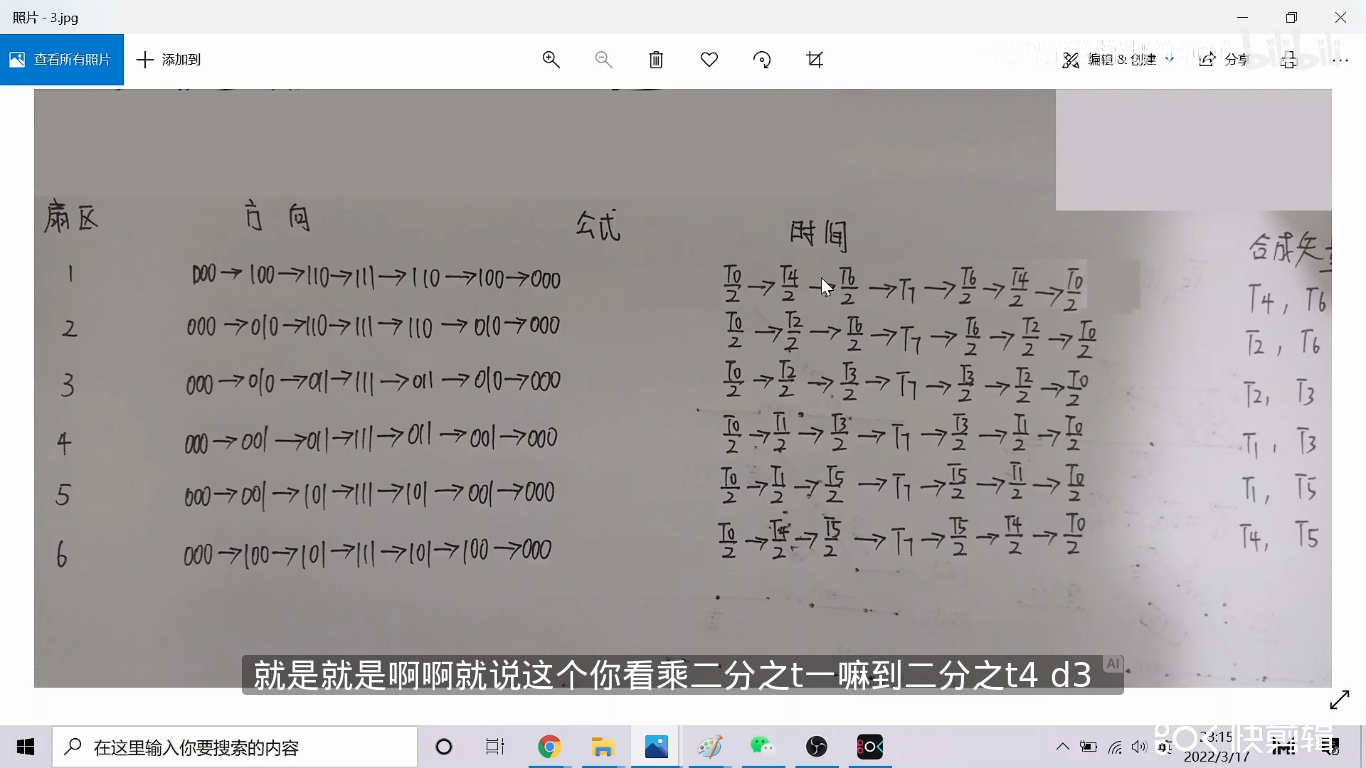 照片 - 3.jpg
查看所有照片 添加到 编辑 & 创建 分享
bilibili
扇区 方向 公式 时间 合成矢
1 000→100→110→111→110→100→000 T0/2→T4/2→T6/2→T7→T6/2→T4/2→T0/2 T4, T6
2 000→010→110→111→110→010→000 T0/2→T2/2→T6/2→T7→T6/2→T2/2→T0/2 T2, T6
3 000→010→011→111→011→010→000 T0/2→T2/2→T3/2→T7→T3/2→T2/2→T0/2 T2, T3
4 000→001→011→111→011→001→000 T0/2→T1/2→T3/2→T7→T3/2→T1/2→T0/2 T1, T3
5 000→001→101→111→101→001→000 T0/2→T1/2→T5/2→T7→T5/2→T1/2→T0/2 T1, T5
6 000→100→101→111→101→100→000 T0/2→T4/2→T5/2→T7→T5/2→T4/2→T0/2 T4, T5
就是就是啊啊就说这个你看乘二分之t一嘛到二分之t4 d3 AI
在这里输入你要搜索的内容
快剪辑
2022/3/17